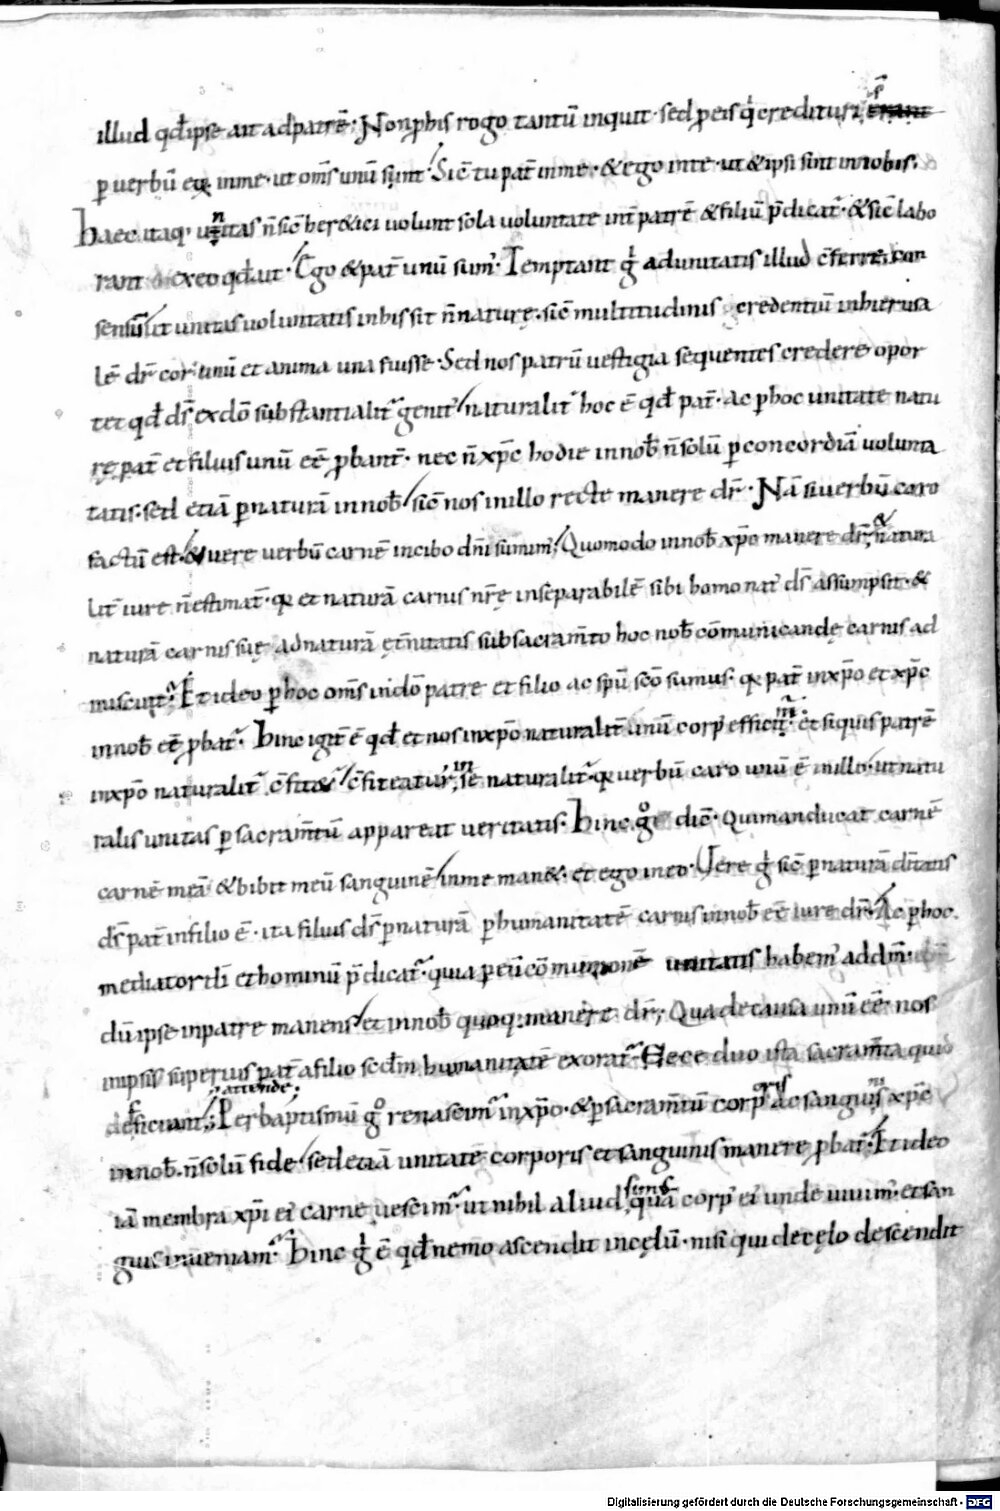 illud qđ ipse ait ad patrē. Non ꝓ his rogo tantū inquit. sed ꝓ eis q̇ credituri s̄t
ꝑ verbū eoꝝ in me. ut om̄s unū sint. Sic̄ tu pat̄ in me. & ego in te. ut & ipsi sint in nobis.
haec itaq; unitas n̄ sic̄ her&ici uolunt sola uoluntate int̄ patrē & filiū p̄dicat̄. & sic̄ labo
rant ex eo qđ ait. Ego & pat̄ unū sum᾿. Temptant g̊ ad unitatis illud c̄ferre con
sensū ut unitas uoluntatis in his sit n̄ naturę. sic̄ multitudinis credentiū in hierusa
lē dr̄ cor unū et anima una fuisse. Sed nos patrū uestigia sequentes credere opor
tet qđ dī ex dō substantialit̄ genit᾿ naturalit̄ hoc ē qđ pat̄. ac ꝑ hoc unitate natu
rę pat̄ et filius unū eē ꝓbant̄. nec n̄ xp̄c hodie in nob̄ n̄ solū ꝑ concordiā uolunta
tatis. sed etiā ꝑ naturā in nob̄. sic̄ nos in illo recte manere dr̄. Nā si uerbū caro
factū est. & uere verbū carnē in cibo dn̄i sumim᾿. Quomodo in nob̄ xp̄c manere dr̄ & natura
lit̄ iure n̄ estimat̄. q; et naturā carnis nr̄ę inseparabilē sibi homo nat᾿ dī assumpsit. &
naturā carnis suę ad naturā ęt̄nitatis sub sacram̄to hoc nob̄ cōmunicandę carnis ad
miscuit. Et ideo ꝑ hoc om̄s in dō patre et filio ac sp̄u sc̄o sumus. q; pat̄ in xp̄o et xp̄c
in nob̄ eē ꝓbat̄. Hinc igit̄ ē qđ et nos in xp̄o naturalit̄ unū corp᾿ efficim̄. et siquis patrē
in xp̄o naturalit̄ c̄fit& c̄fiteatur in sē naturalit̄. q; verbū caro unū ē in illo. ut natu
ralis unitas ꝑ sacram̄tū appareat veritatis. Hinc g̊ dic̄. Qui manducat carnē
carnē meā & bibit meū sanguinē in me man&. et ego in eo. Vere g̊ sic̄ ꝑ naturā dītatis
dī pat̄ in filio ē. ita filius dī ꝑ naturā ꝑ humanitatē carnis in nob̄ eē iure dr̄. Ac ꝑ hoc
mediator dī et hominū p̄dicat̄. quia ꝑ eū cōmunionē unitatis habem᾿ ad dm̄.
dū ipse in patre manens et in nob̄ quoq; manere dr̄. Qua de causa unū eē nos
in ipsis superius pat̄ a filio scđm humanitatē exorat̄. Ecce duo ista sacram̄ta quid
efficiunt attende; Per baptismū g̊ renascim᾿ in xp̄o. & ꝑ sacram̄tū corporis ac sanguinis xp̄c
in nob̄. n̄ solū fide. sed etiā unitatē corporis et sanguinis manere ꝓbat̄. Et ideo
iā membra xp̄i ei᾿ carne uescim᾿. ut nihil aliud simus quā corp᾿ ei᾿ unde uiuim᾿. et san
guis inueniam᾿. Hinc g̊ ē qđ nemo ascendit in cęlū. nisi qui de cęlo descendit
Digitalisierung gefördert durch die Deutsche Forschungsgemeinschaft - DFG